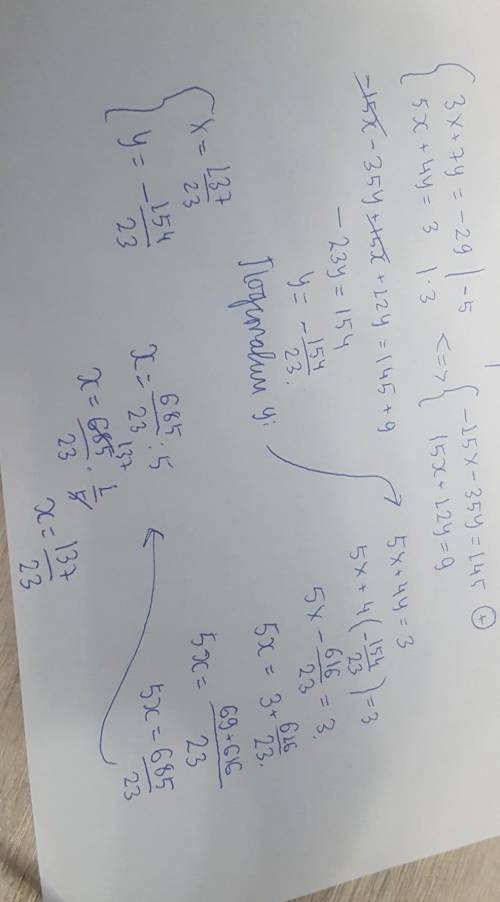 { 3x + 7y = -29 | -5
{ 5x + 4y = 3 | ·3
<=> { -15x - 35y = 145 (+)
{ 15x + 12y = 9
-15x - 35y + 15x + 12y = 145 + 9
- 23y = 154
y = - 154/23.
Подставим y:
5x + 4y = 3
5x + 4 (-154/23) = 3
5x - 616/23 = 3.
5x = 3 + 616/23.
5x = 69 + 616/23
5x = 685/23
x = 685/23 : 5
x = 685/23 · 1/5
137
x = 137/23
{ x = 137/23
{ y = - 154/23